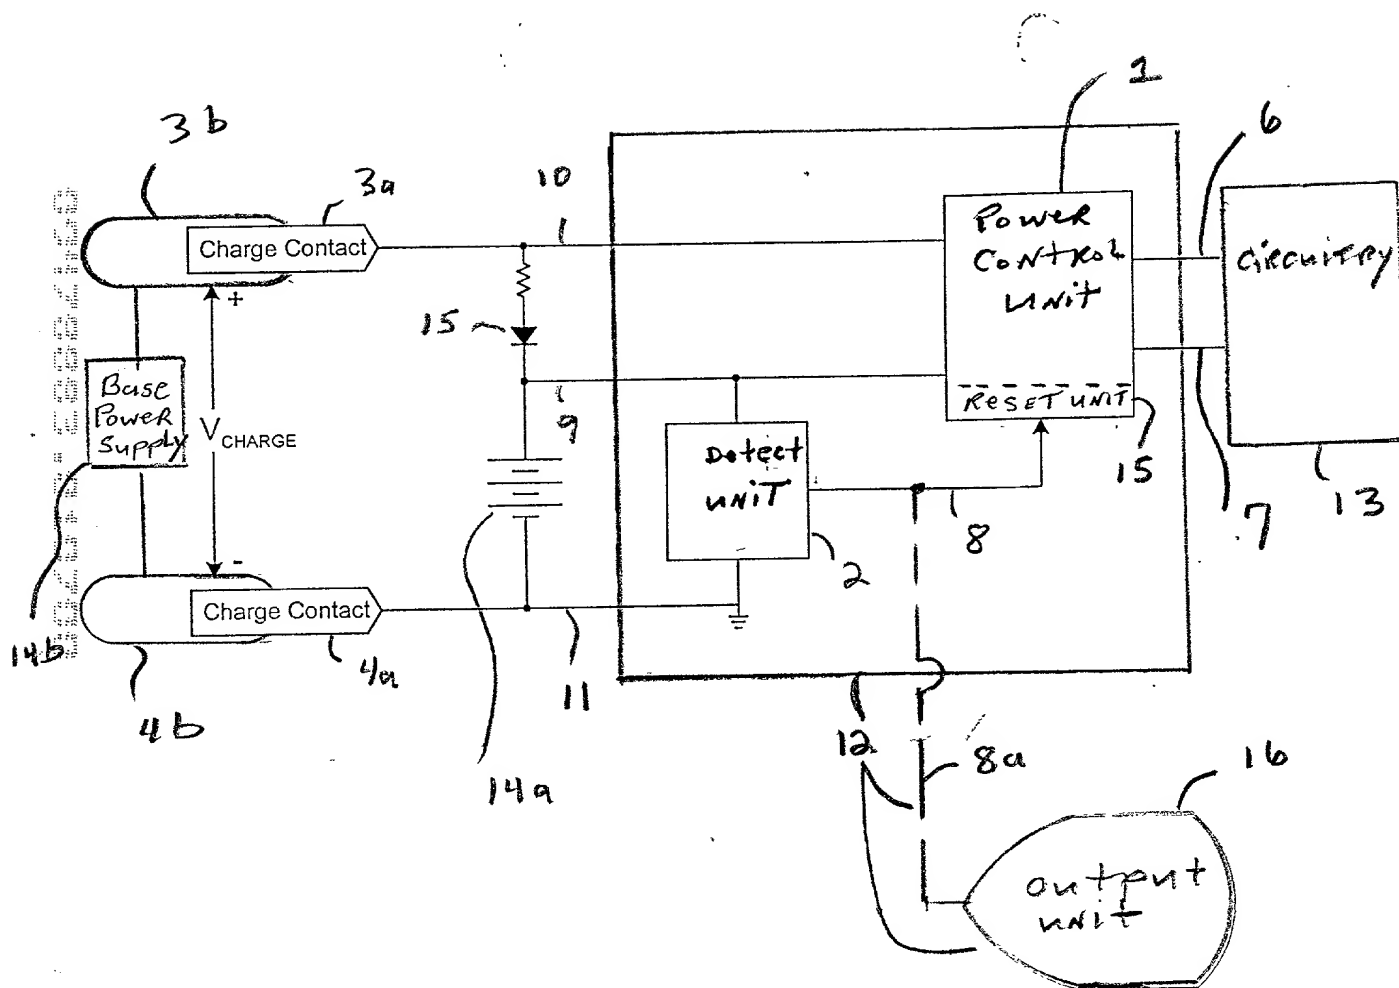 1
3b
6
3a
10
Charge Contact
Power
Control
Unit
Circuitry
+
15
Base
Power
Supply
VCHARGE
9
Reset Unit
Detect
Unit
15
8
7
13
2
-
Charge Contact
14b
4a
11
4b
12
8a
16
14a
Output
Unit